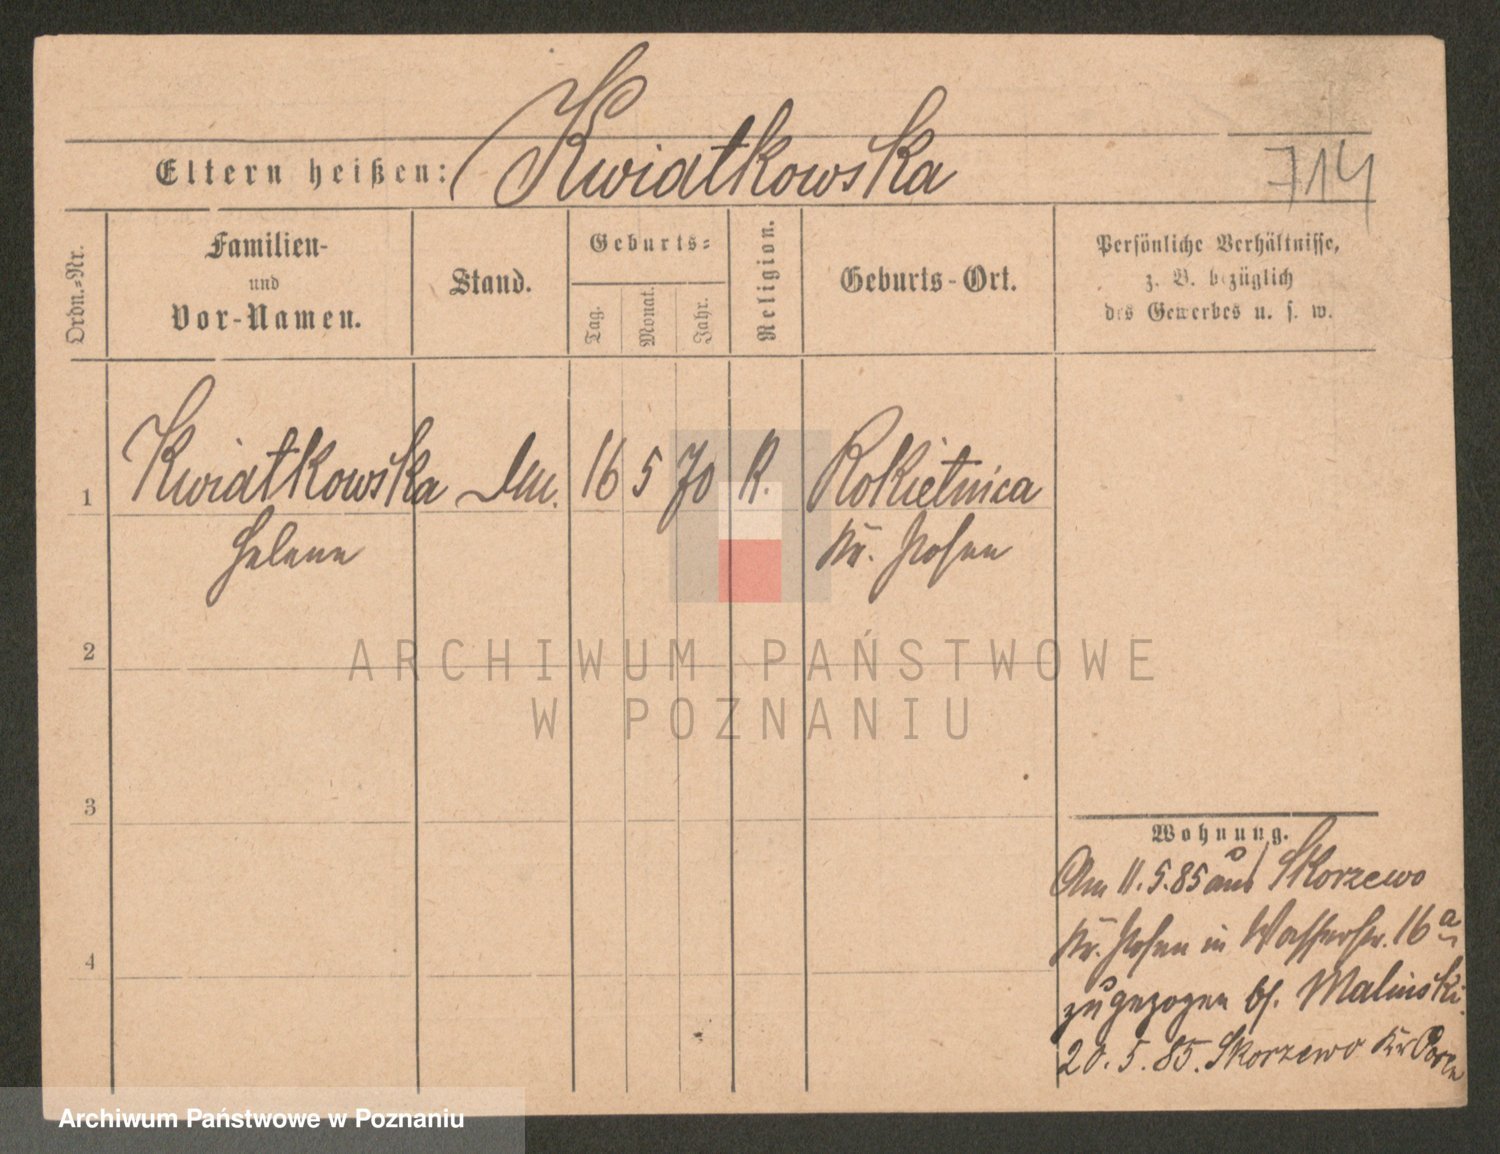 Kwiatkowska
Eltern heißen:
714
Ordn.-Nr.
Familien-
und
Vor-Namen.
Stand.
Geburts-
Tag.
Monat.
Jahr.
Religion.
Geburts-Ort.
Persönliche Verhältnisse,
z. B. bezüglich
des Gewerbes u. s. w.
1
Kwiatkowska
16 5 70 K.
Rokietnica
Helene
Kr. Posen
2
ARCHIWUM PAŃSTWOWE
W POZNANIU
3
Wohnung.
Am 11.5.85 aus Skorzewo
Kr. Posen in Wasserstr. 16a
zugezogen bf. Malinski.
4
20.5.85. Skorzewo Kr Posen
Archiwum Państwowe w Poznaniu